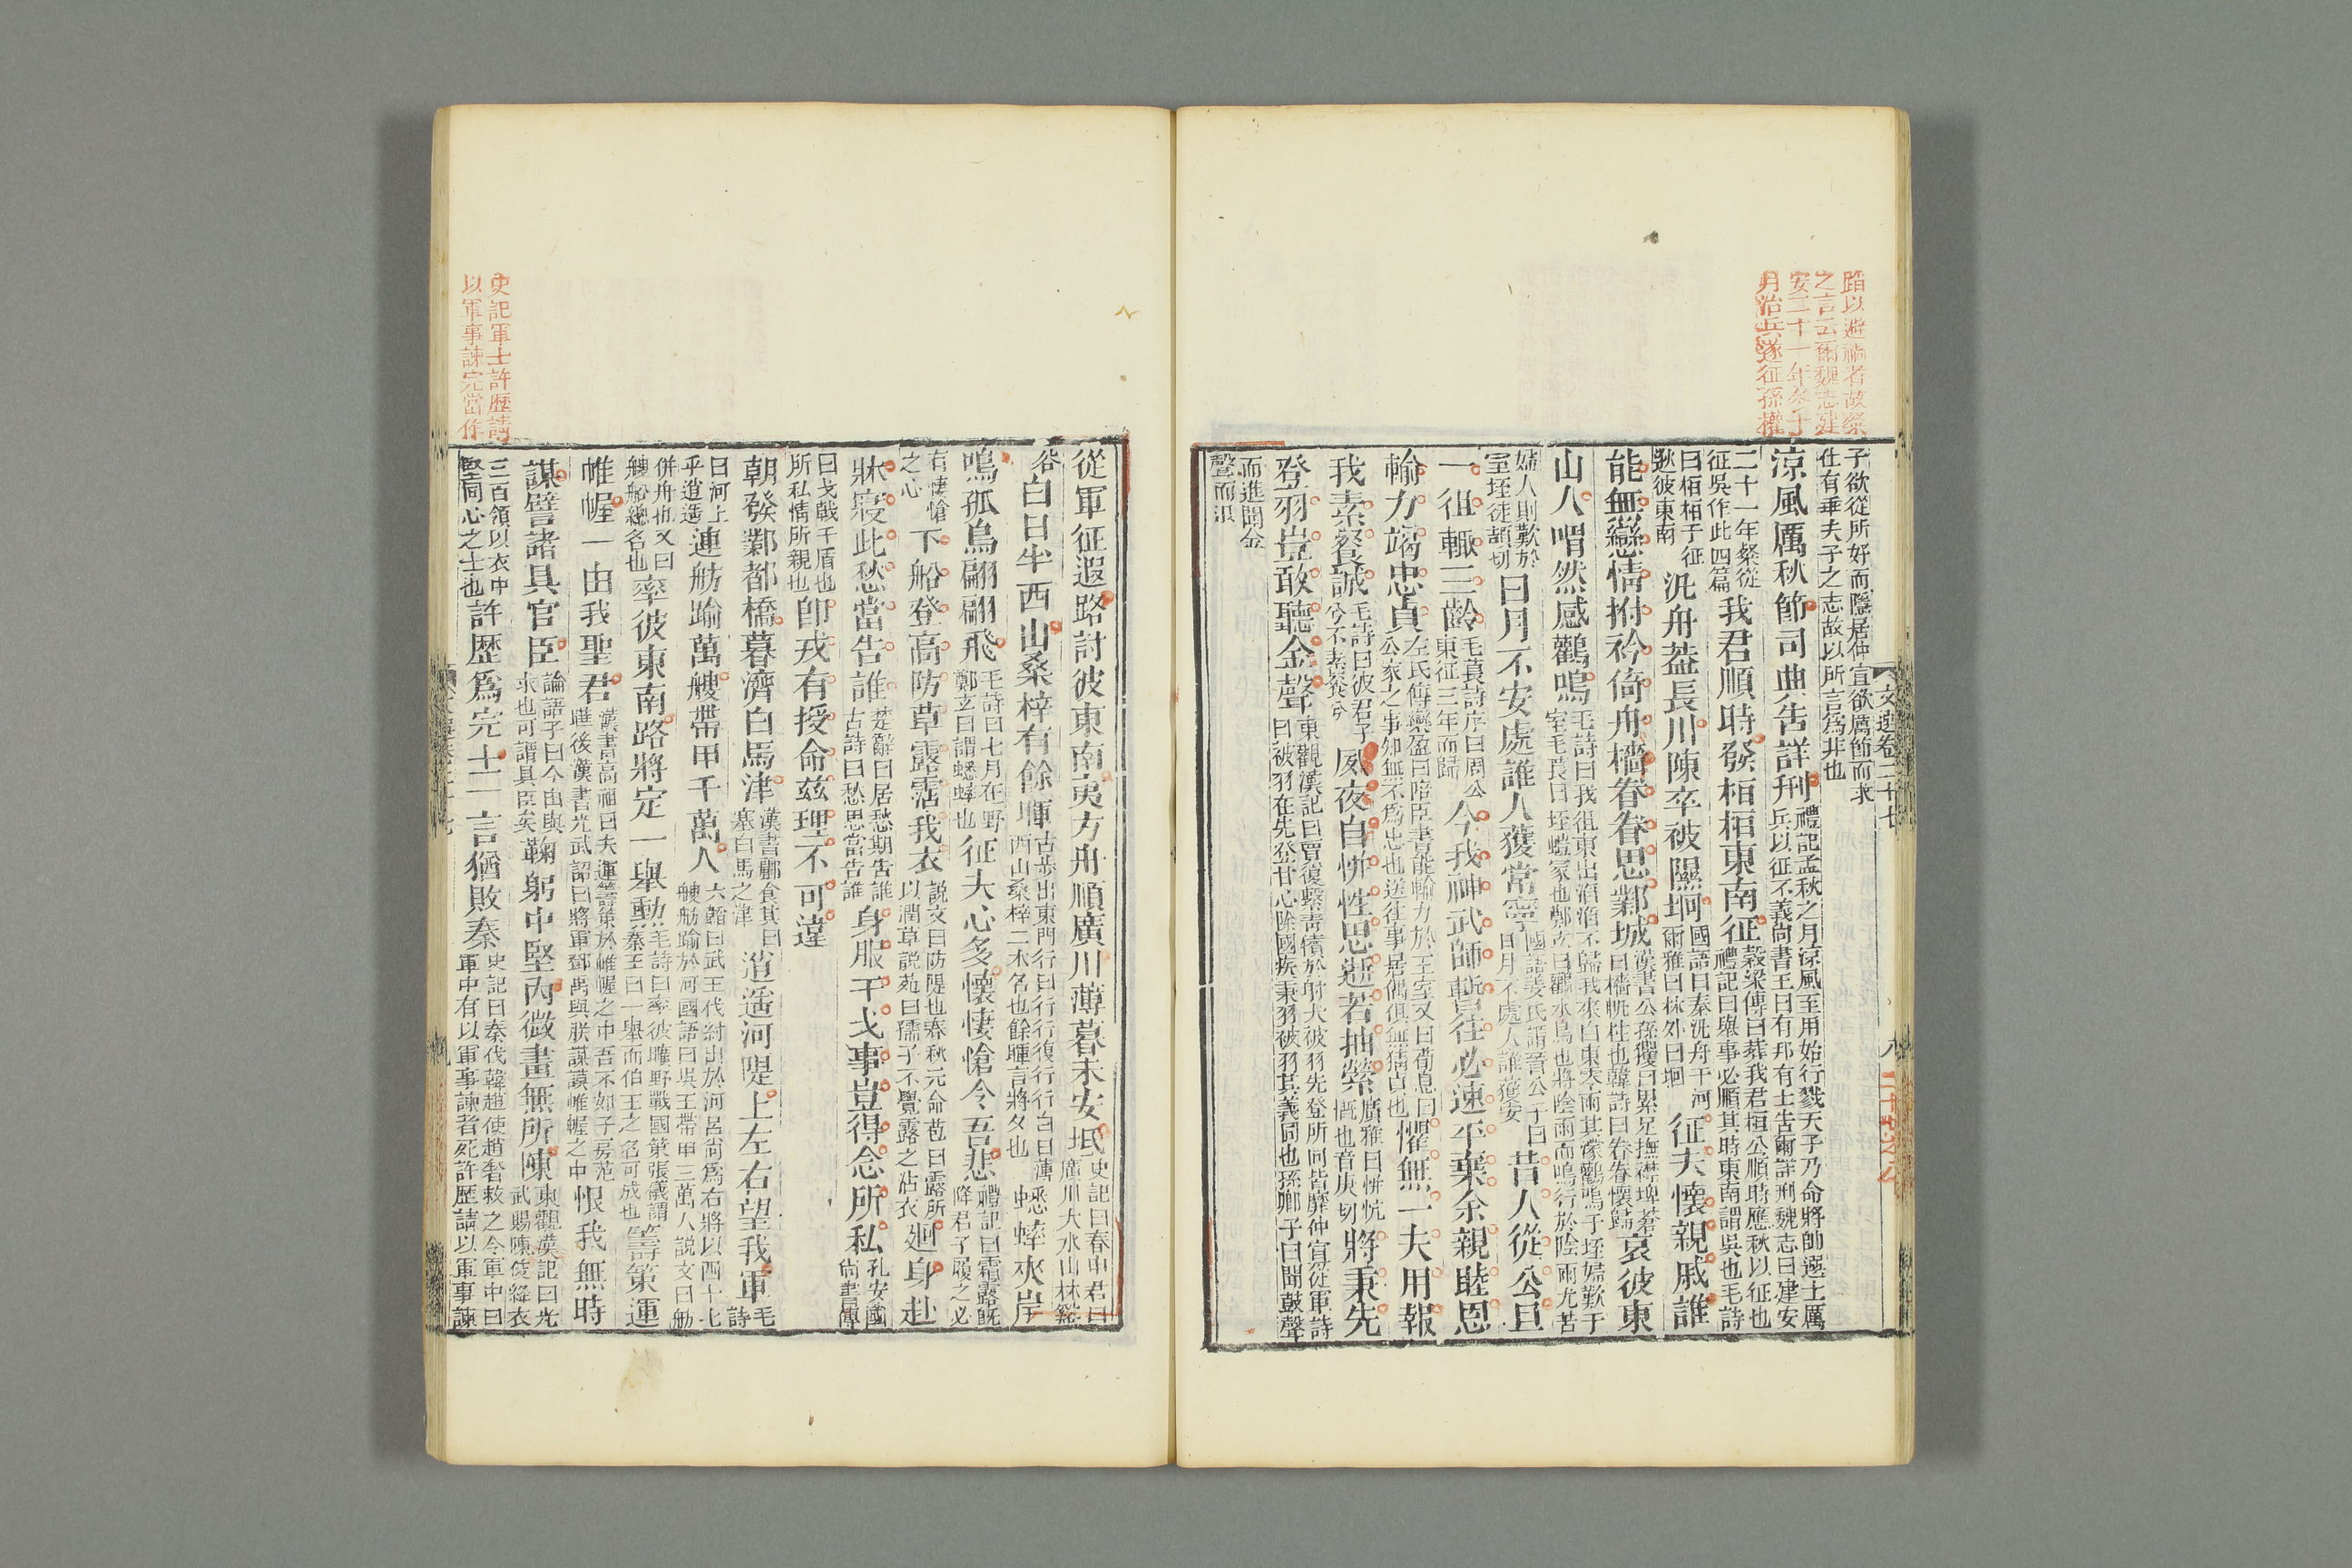 踏以避禍者故粲
之言云爾魏志建
安二十一年粲于
月治兵遂征孫權
文選卷二十七
八
子欲從所好而隱居仲宣欲厲節而求
仕有乖夫子之志故以所言爲非也
涼風厲秋節司典告詳刑
禮記孟秋之月涼風至用始行戮天子乃命將帥選士厲
兵以征不義尚書王曰有邦有土告爾詳刑魏志曰建安
二十一年粲從
征吳作此四篇
我君順時發桓桓東南征
穀梁傳曰葬我君桓公順時應秋以征也
禮記曰舉事必順其時東南謂吳也毛詩
曰桓桓于征
逖彼東南
汎舟葢長川陳卒被隰坰
國語曰秦汎舟于河
爾雅曰林外曰坰
征夫懷親戚誰
能無戀情拊衿倚舟檣眷眷思鄴城
漢書公孫玃曰累足撫襟埤蒼
曰檣帆柱也韓詩曰眷眷懷歸
哀彼東
山人喟然感鸛鳴
毛詩曰我徂東山滔滔不歸我來自東零雨其濛鸛鳴于垤婦歎于
室毛萇曰垤螘冢也鄭玄曰鸛水鳥也將陰雨而鳴行於陰雨尤苦
婦人則歎於
室垤徒頡切
日月不安處誰人獲常寧
國語姜氏謂晉公子曰
日月不處人誰獲安
昔人從公旦
一徂輙三齡
毛萇詩序曰周公
東征三年而歸
今我神武師暫往必速平棄余親睦恩
輸力竭忠貞
左氏傳欒盈曰陪臣書能輸力於王室又曰荀息曰
公家之事知無不爲忠也送往事居偶俱無猜貞也
懼無一夫用報
我素餐誠
毛詩曰彼君子
兮不素餐兮
夙夜自恲性思逝若抽縈
廣雅曰恲忼
慨也音庚切
將秉先
登羽豈敢聽金聲
東觀漢記曰賈復擊青犢於射犬被羽先登所向皆靡仲宣從軍詩
曰被羽在先登甘心除國疾秉羽被羽其義同也孫卿子曰聞鼓聲
而進聞金
聲而退
從軍征遐路討彼東南夷方舟順廣川薄暮未安坻
史記曰春申君曰
廣川大水山林谿
谷
白日半西山桑梓有餘暉
古步出東門行曰行行復行行白日薄
西山桑梓二木名也餘暉言將夕也
蟋蟀夾岸
鳴孤鳥翩翩飛
毛詩曰七月在野
鄭玄曰謂蟋蟀也
征夫心多懷悽愴令吾悲
禮記曰霜露既
降君子履之必
有悽愴
之心
下船登高防草露霑我衣
説文曰防隄也春秋元命苞曰露所
以潤草説苑曰孺子不覺露之沾衣
廻身赴
牀寢此愁當告誰
楚辭曰居愁期告誰
古詩曰愁思當告誰
身服干戈事豈得念所私
孔安國
尚書傳
曰戈戟干盾也
所私情所親也
卽戎有授命兹理不可違
朝發鄴都橋暮濟白馬津
漢書酈食其曰
塞白馬之津
逍遥河隄上左右望我軍
毛
詩
曰河上
乎逍遥
連舫踰萬艘帶甲千萬人
六韜曰武王伐紂出於河呂尚爲右將以四十七
艘舫踰於河國語曰吳王帶甲三萬人説文曰舫
併舟也又曰
艘船總名也
率彼東南路將定一舉動
毛詩曰率彼曠野戰國策張儀謂
秦王曰一舉而伯王之名可成也
籌策運
帷幄一由我聖君
漢書高祖曰夫運籌策於帷幄之中吾不如子房范
曄後漢書光武詔曰將軍鄧禹與朕謀謨帷幄之中
恨我無時
謀譬諸具官臣
論語子曰今由與
求也可謂具臣矣
鞠躬中堅内微畫無所陳
東觀漢記曰光
武賜陳俊絳衣
三百領以衣中
堅同心之士也
許歴爲完士一言猶敗秦
史記曰秦伐韓趙使趙奢救之令軍中曰
軍中有以軍事諫者死許歴請以軍事諫
史記軍士許歴請
以軍事諫完當作